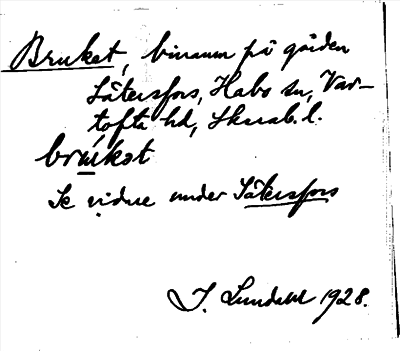 Bruket, binamn på gården
Sätersfors, Habo sn, Var-
tofta hd, Skarab. l.
brukət
Se vidare under Sätersfors
I. Lundahl 1928.